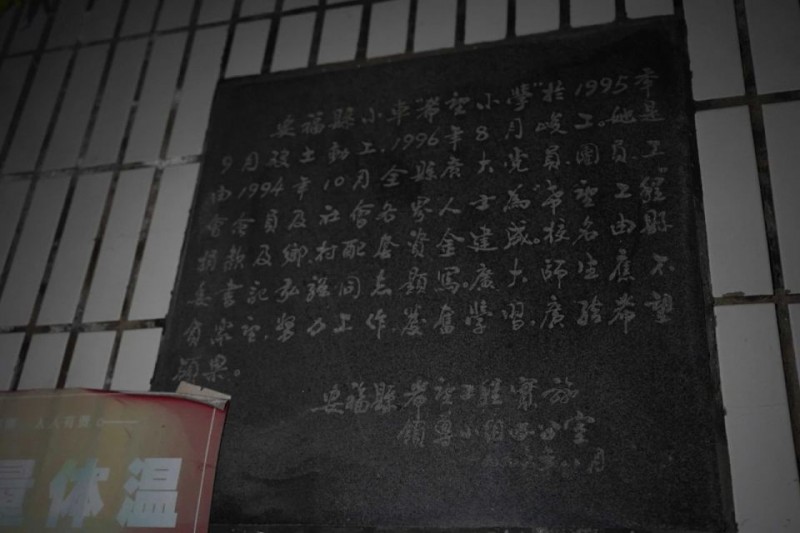 安福縣小车"希望小學"於1995年
9月破土動工,1996年8月峻工。她是
由1994年10月全縣廣大党員、團員、工
會會員及社會各界人士為"希望工程"
捐款及鄉、村配套資金建成。校名由縣
委書記
同志題寫。廣大師生應不
負眾望,努力工作,發奮學習,廣結希望
碩果。
安福縣希望工程實施
領導小組办公室
一九九六年八月
人人有責
量体温